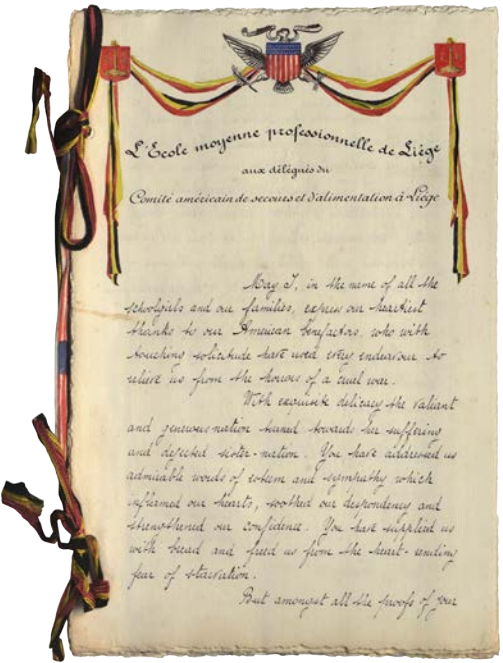 L'Ecole moyenne professionnelle de Liège
aux délégués du
Comité américain de secours et d'alimentation à Liège
May I, in the name of all the
schoolgirls and our families, express our heartiest
thanks to our American benefactors, who with
touching solicitude have used every endeavour to
relieve us from the horrors of a cruel war.
With exquisite delicacy the valiant
and generous nation turned towards her suffering
and dejected sister-nation. You have addressed us
admirable words of esteem and sympathy which
inflamed our hearts, soothed our despondency and
strengthened our confidence. You have supplied us
with bread and freed us from the heart-rending
fear of starvation.
But amongst all the proofs of your